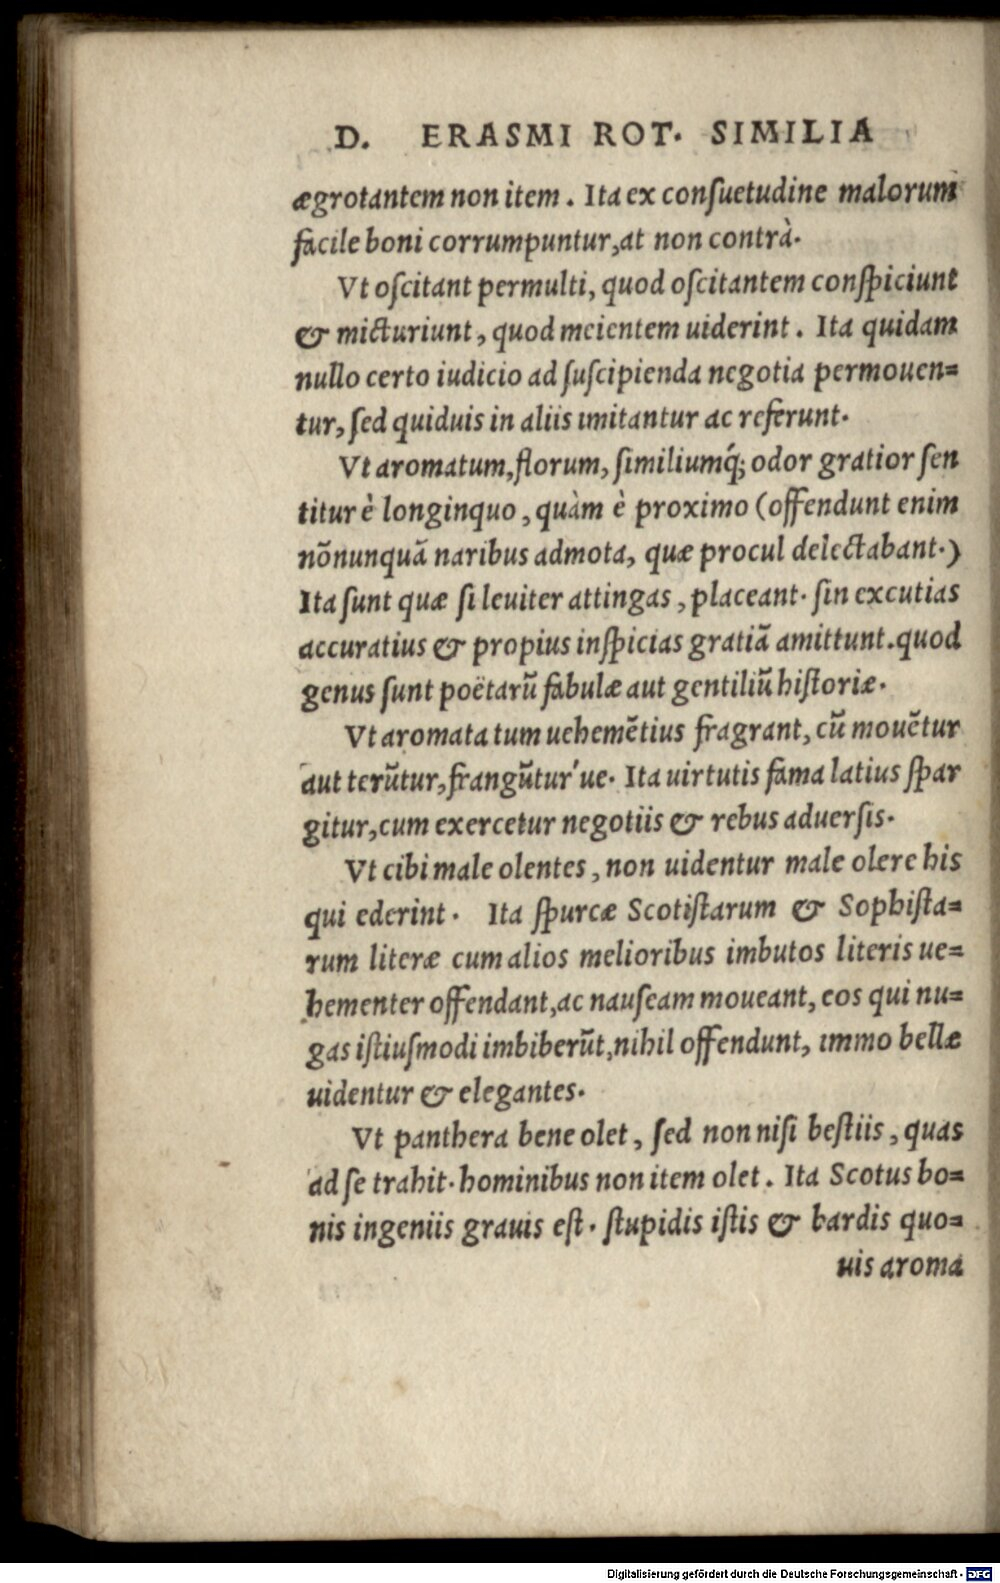 D. ERASMI ROT. SIMILIA
ægrotantem non item. Ita ex conſuetudine malorum
facile boni corrumpuntur, at non contrà.
Vt oſcitant permulti, quod oſcitantem conſpiciunt
& micturiunt, quod meientem uiderint. Ita quidam
nullo certo iudicio ad ſuſcipienda negotia permouen=
tur, ſed quiduis in aliis imitantur ac referunt.
Vt aromatum, florum, ſimiliumq́; odor gratior ſen
titur è longinquo, quàm è proximo (offendunt enim
nõnunquã naribus admota, quæ procul delectabant.)
Ita ſunt quæ ſi leuiter attingas, placeant. ſin excutias
accuratius & propius inſpicias gratiã amittunt. quod
genus ſunt poëtarũ fabulæ aut gentiliũ hiſtoriæ.
Vt aromata tum uehemẽtius fragrant, cũ mouẽtur
aut terũtur, frangũtur'ue. Ita uirtutis fama latius ſpar
gitur, cum exercetur negotiis & rebus aduerſis.
Vt cibi male olentes, non uidentur male olere his
qui ederint. Ita ſpurcæ Scotiſtarum & Sophiſta=
rum literæ cum alios melioribus imbutos literis ue=
hementer offendant, ac nauſeam moueant, eos qui nu=
gas iſtiuſmodi imbiberũt, nihil offendunt, immo bellæ
uidentur & elegantes.
Vt panthera bene olet, ſed non niſi beſtiis, quas
ad ſe trahit. hominibus non item olet. Ita Scotus bo=
nis ingeniis grauis eſt. ſtupidis iſtis & bardis quo=
uis aroma
Digitalisierung gefördert durch die Deutsche Forschungsgemeinschaft - DFG